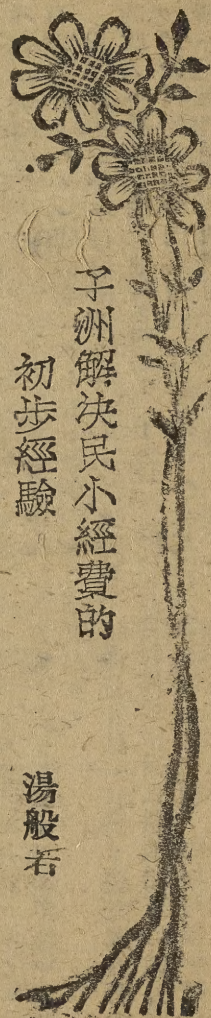 子洲解決民小經費的
初步經驗
湯般若